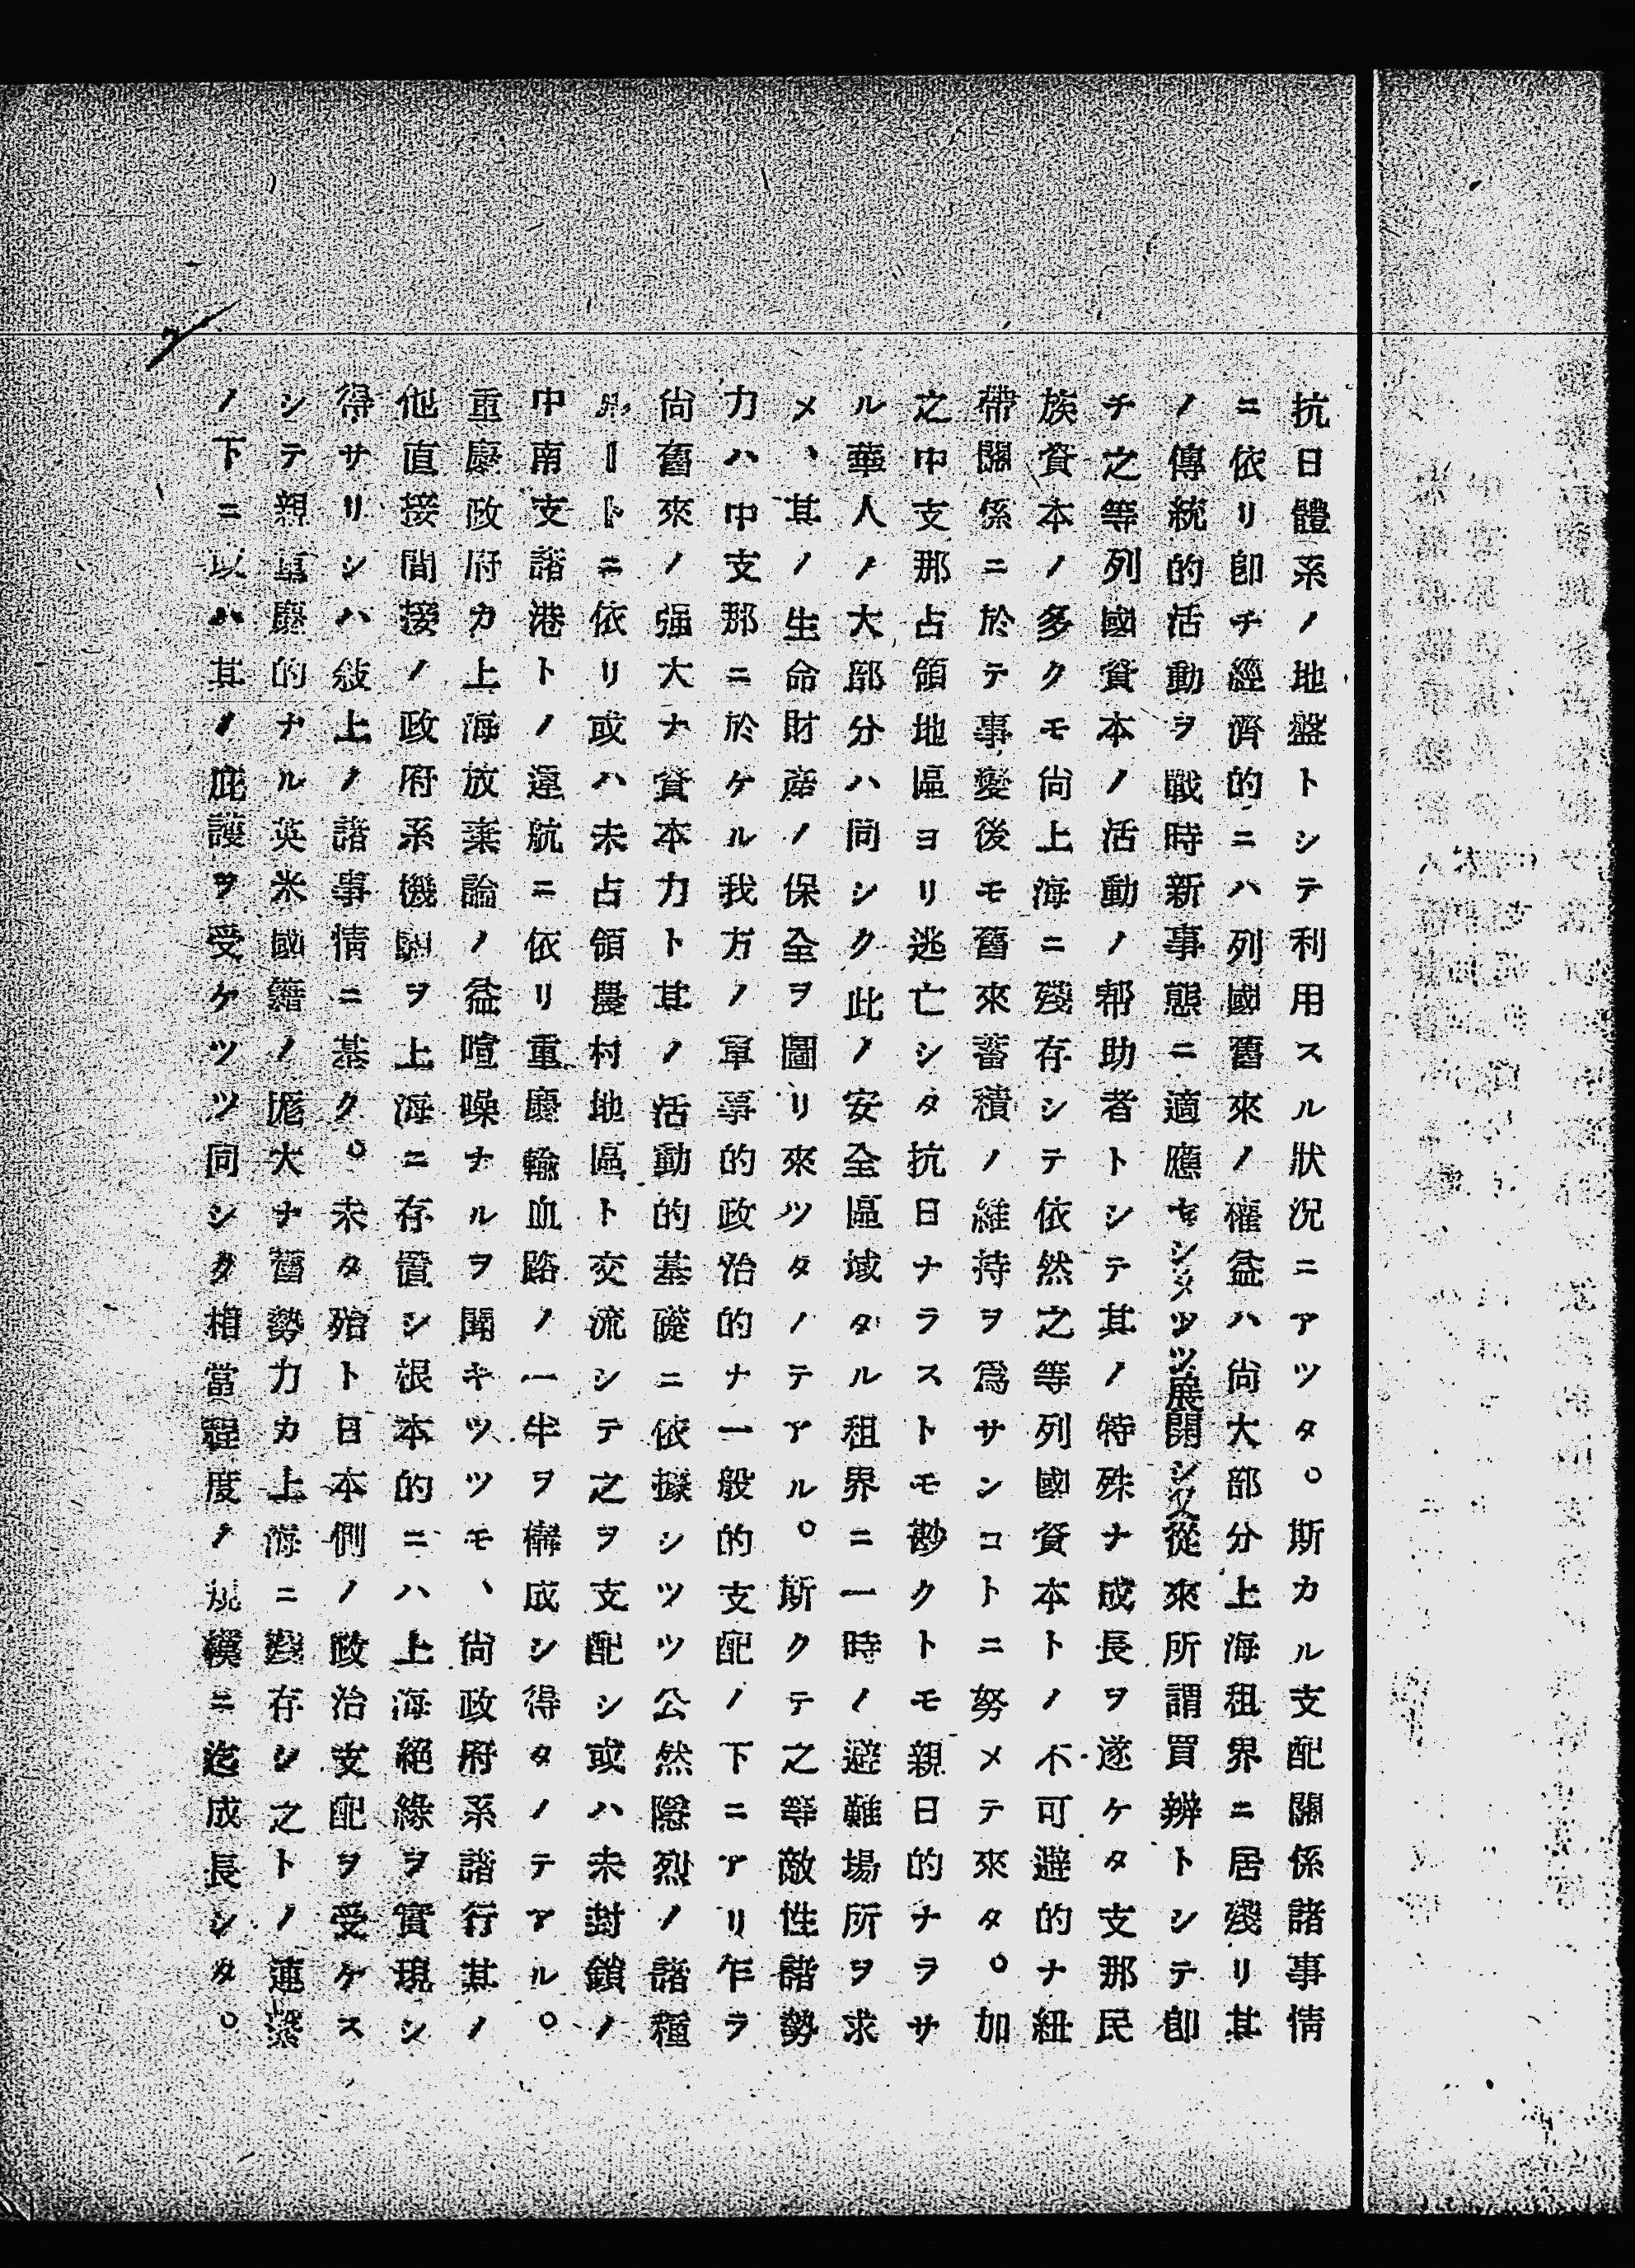 抗日體系ノ地盤トシテ利用スル狀況ニアツタ。斯カル支配關係諸事情
ニ依リ卽チ經濟的ニハ列國舊來ノ權益ハ尙大部分上海租界ニ居殘リ其
ノ傳統的活動ヲ戰時新事態ニ適應セシメツツ展開シ又從來所謂買辦トシテ卽
チ之等列國資本ノ活動ノ幇助者トシテ其ノ特殊ナ成長ヲ遂ケタ支那民
族資本ノ多クモ尙上海ニ殘存シテ依然之等列國資本トノ不可避的ナ紐
帶關係ニ於テ事變後モ舊來蓄積ノ維持ヲ爲サンコトニ努メテ來タ。加
之中支那占領地區ヨリ逃亡シタ抗日ナラストモ尠クトモ親日的ナラサ
ル華人ノ大部分ハ同シク此ノ安全區域タル租界ニ一時ノ避難場所ヲ求
メ、其ノ生命財產ノ保全ヲ圖リ來ツタノテアル。斯クテ之等敵性諸勢
力ハ中支那ニ於ケル我方ノ軍事的政治的ナ一般的支配ノ下ニアリ乍ラ
尙舊來ノ强大ナ資本力ト其ノ活動的基礎ニ依據シツツ公然隱烈ノ諸種
ルートニ依リ或ハ未占領農村地區ト交流シテ之ヲ支配シ或ハ未封鎖ノ
中南支諸港トノ還航ニ依リ重慶輸血路ノ一半ヲ構成シ得タノテアル。
重慶政府カ上海放棄論ノ益喧噪ナルヲ聞キツツモ、尙政府系諸行其ノ
他直接間接ノ政府系機關ヲ上海ニ存置シ根本的ニハ上海絕緣ヲ實現シ
得サリシハ敍上ノ諸事情ニ基ク。未タ殆ト日本側ノ政治支配ヲ受ケス
シテ親重慶的ナル英米國籍ノ尨大ナ舊勢力カ上海ニ殘存シ之トノ連繫
ノ下ニ以ハ其ノ庇護ヲ受ケツツ同シク相當程度ノ規模ニ迄成長シタ。